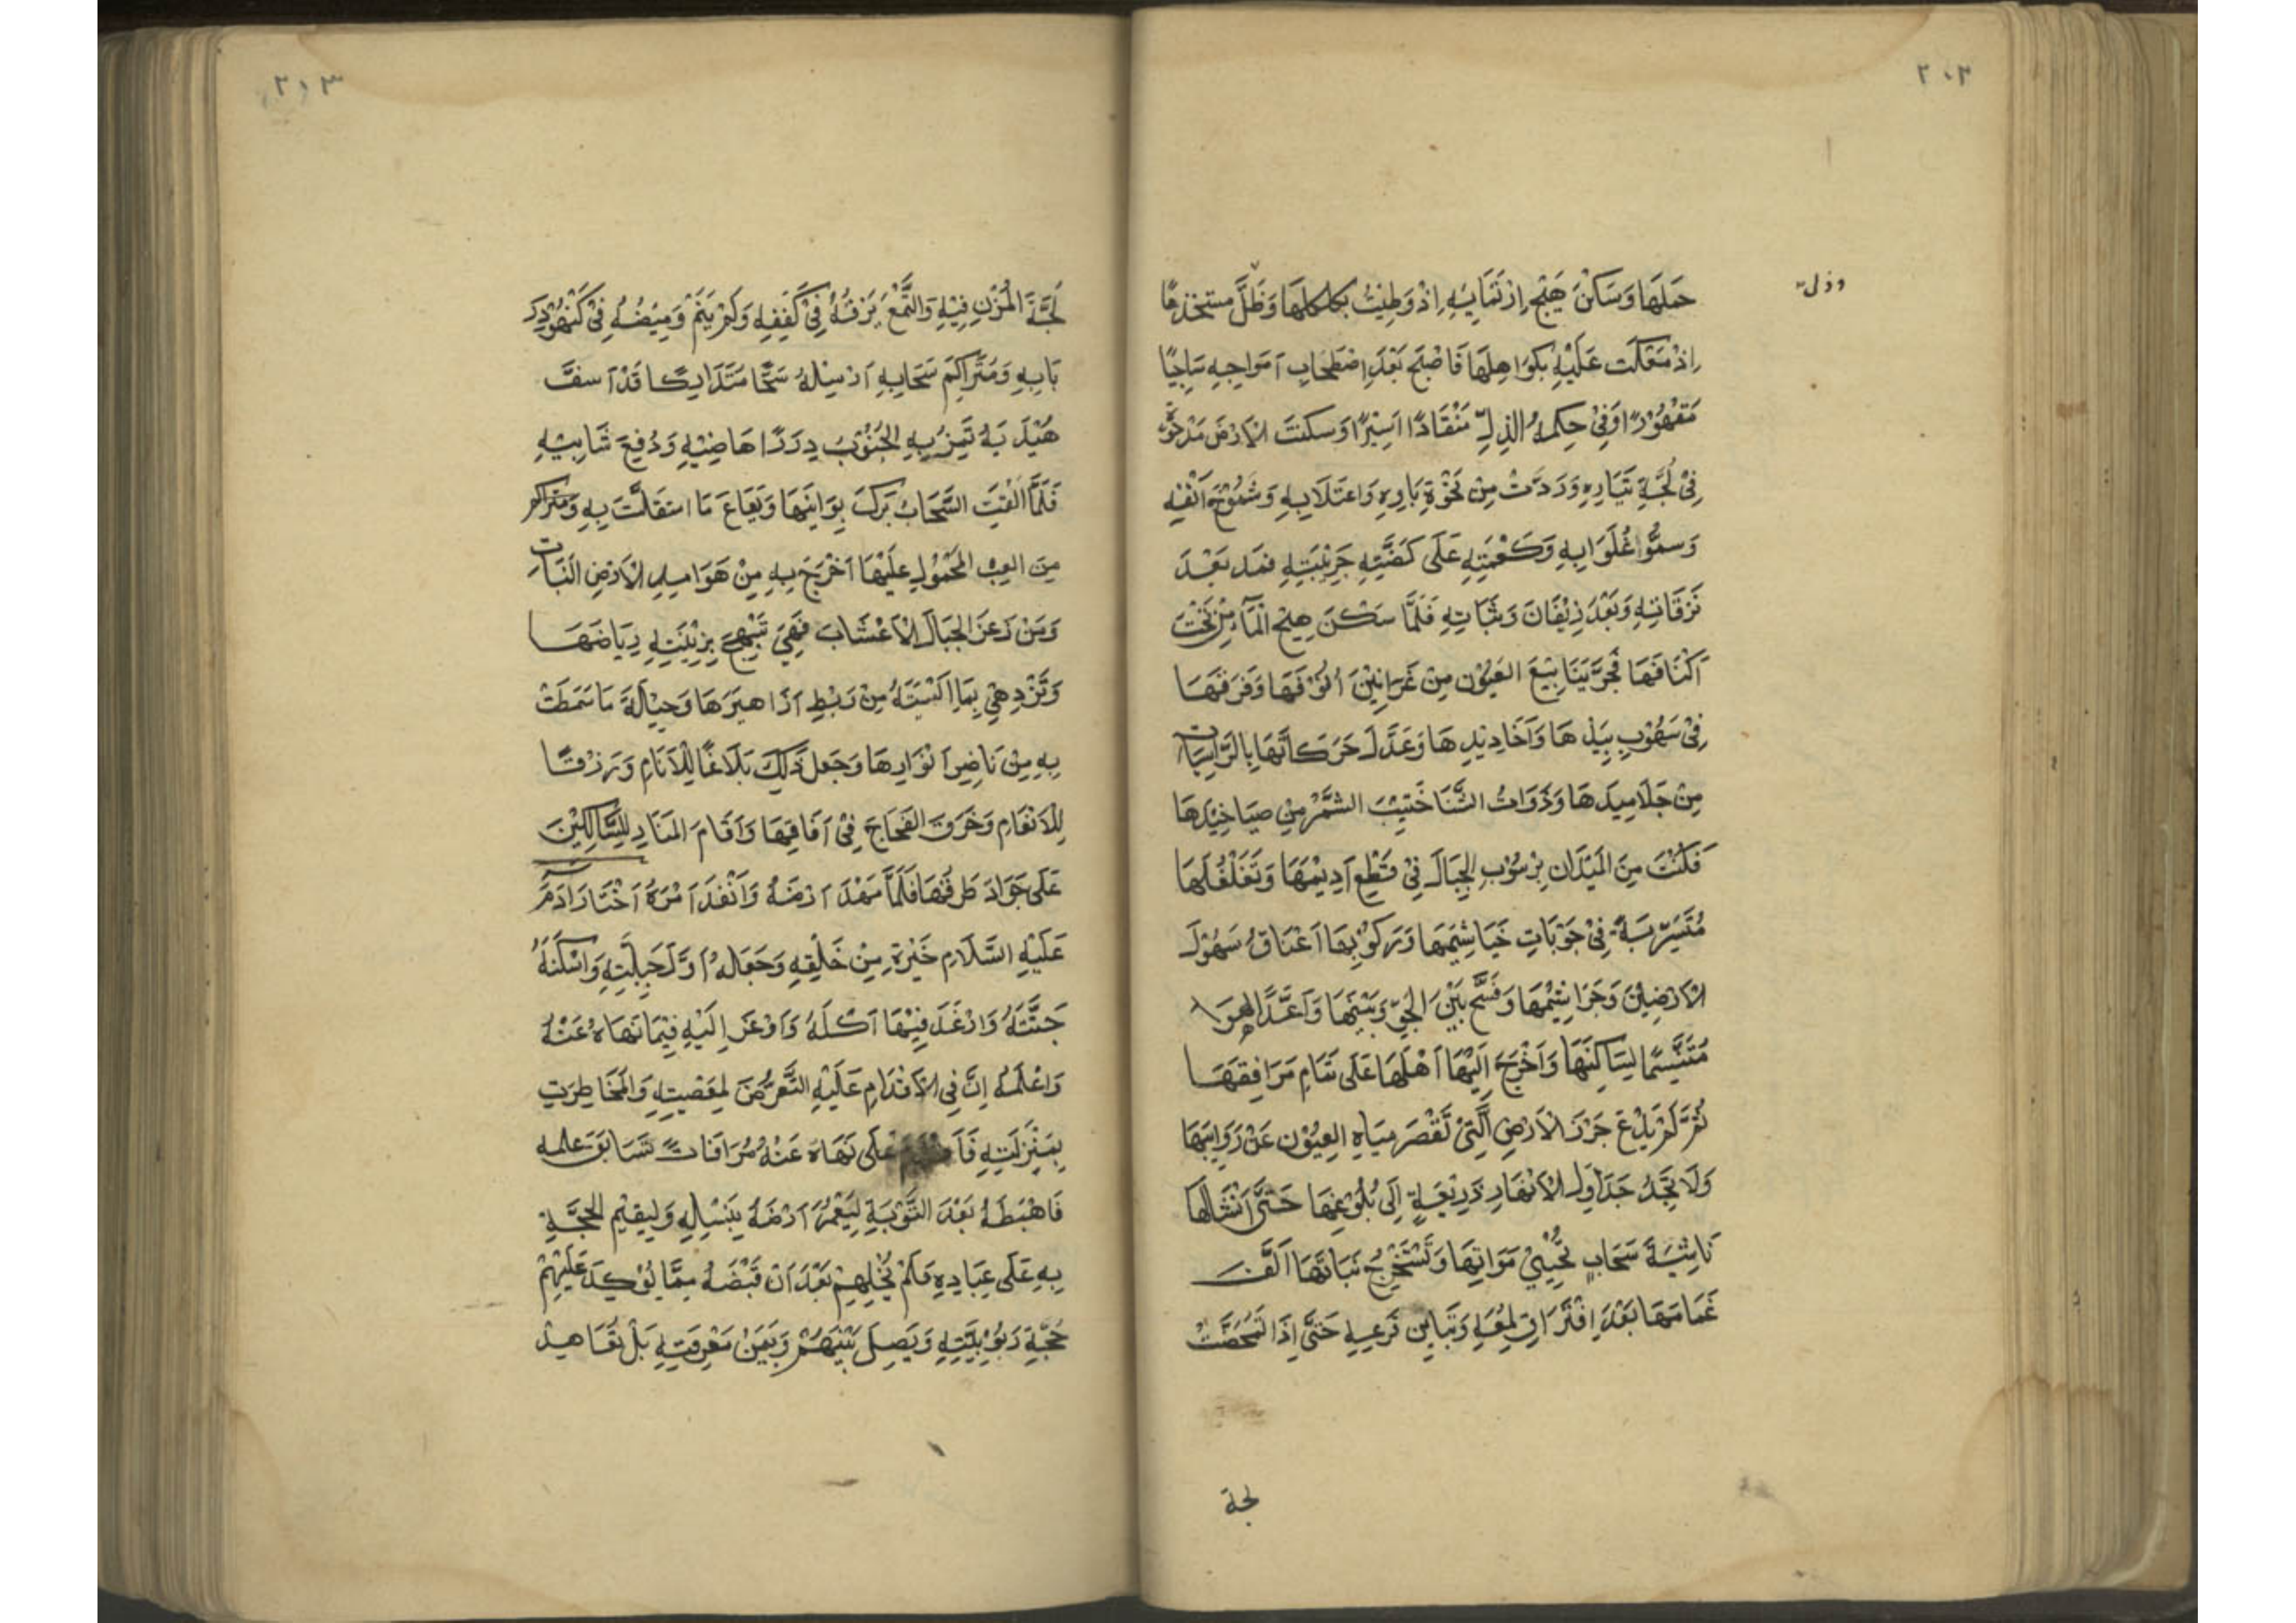 ٢٠٣
وذل
حملها وَسَكَنَ هَيْجُ اِرْتَمَايِهِ اِذْ وَطِئَتْ بكلكلها وَظَلَّ مستخذيا
اِذْ مَعَكَت عَلَيْهِ بكَوَاهِلِهَا فَاَصْبَحَ بَعْدَ اِصْطِحَابِ اَمْوَاجِهِ سَاجِيًا
مَقْهُوْرًا وَفِىْ حِكمةِ الذلِّ مُنْقَادًا اَسِيْرًا وَسكنَتِ الاَرْضُ مَدْحُوَّ
فِىْ لُجَّةِ تَيَّارِهِ وَرَدَّتْ مِنْ نَخْوَةِ بَاوِهِ وَاعتَلَايِهِ وَشُمُوْخِ اَنْفِهِ
وَسموُّا غُلَوَايِهِ وَكَعْمَتِهِ عَلَى كَضَّتِهِ جَرِيْتِهِ فهمد بَعْدَ
نَزَقَاتِهِ وَبَعْدَ زِيْفَانَ وَثَبَاتِهِ فَلَمَّا سَكَنَ هيْج المَآءِ مِنْ تَحْتِ
اَكْنَافَهَا فَجَّرَ يَنَابِيْعَ العيُوْنِ مِنْ عَرَانِيْنَ اُنُوْفِهَا وَفَرَقهَا
فِىْ سهُوْبِ بِيْدِهَا وَاَخَادِيْدِهَا وَعَدَّلَ حَرَكَاتَهَا بِالرَّاسِيَات
مِنْ جَلَامِيدَهَا وَذَوَاتُ الشَّنَاخِيْبَ الشمّ مِنْ صيَاخِيْدَهَا
فَسَكَنْتَ مِنَ المَيْدَانِ بِرسُوْبِ الجِبَالَ فِىْ قَطِع اَدِيْمِهَا وَتَغَلْغُلِهَا
مُتَسَرِّبَةً فِىْ جَوْبَاتِ خَيَاشِيْمِهَا وَرَكوْبِهَا اَعْنَاقُ سهُوْلِ
الاَرْضِيْنَ وَجَرَاثِيْمِهَا وَفَسَّحَ بَيْنَ الجَوِّ وَبَيْنَهَا وَاَعَدَّ الهوَا
مُتَنَسَّمًا لِسَاكِنِهَا وَاَخْرَجَ اِلَيْهَا اَهْلَهَا عَلَى تَمَامِ مَرَافِقِهَا
ثُمَّ لَمْ يَدْعَ جُرُزَ الاَرْضِ الَّتِىْ تَقْصرُ مِيَاهِ العيُوْنِ عَنْ رَوَابِيْهَا
وَلَا تَجِدُ جَدَاوِلِ الاَنْهَارِ ذَرِيْعَةٍ اِلَى بُلُوْغِهَا حَتَّى اَنْشَالَهَا
نَاشِئَةَ سَحَابٍ تُحْيِيْ مَوَاتِهَا وَتَسْتَخْرِجُ نَبَاتَهَا اَلَّفَ
غَمَامَهَا بَعْدَ اِفْتِرَاقِ لمعِهِ وَتَبَايِنِ قَزَعِهِ حَتَّى اِذَا تَمَخَّضَتْ
لجة
٢١٣
لُجَّةَ المُزْنِ فِيْهِ وَالتَمَعَ بَرْقُهُ فِىْ كُفَفِهِ وَلَمْ يَنَمْ وَمِيْضُهُ فِىْ كَنَهْوَرِ
رَبَابِهِ وَمُتَرَاكِمَ سَحَابِهِ اَرْسَلهُ سَحًّا مُتَدَارِكًا قَدْ اَسفَّ
هَيْدَبَهُ تمْرِيْهِ الجُنُوْبُ دِرَرًا هَاضِيْبِهِ وَدُفِعَ شَابِيْبِهِ
فَلَمَّا اَلْقَتِ السَّحَابُ بَرْكَ بِوَانِيْهَا وَبَعَاعَ مَا استَقَلَّتْ بِهِ وَمتَراكم
مِنَ العِبْ المَحْمُوْلِ عَلَيْهَا اَخْرَجَ بِهِ مِنْ هَوَامِدِ الاَرْضِ النَّبَات
وَمِنْ زُعْرِ الجِبَالِ الاَعْشَابَ فَهِىَ تَبْهَجُ بِزِيْنَتِهِ رِيَاضَهَا
وَتَزْدَهِىْ بِمَا اَلْبَسَتهُ مِنْ رَيْطِ اَزَاهِيْرَهَا وَحِيْلَةَ مَا سَمَطَتْ
بِهِ مِنْ نَاضِرِ اَنْوَارِهَا وَجَعَلَ ذَلِكَ بَلَاغًا لِلْاَنَامِ وَرِزْقًا
لِلاَنْعَامِ وَخَرَقَ الفجَاجَ فِىْ اَفَاقِهَا وَاَقَامَ المَنَارَ لِلسَّالِكِيْنَ
عَلَى جَوَادَ طرقُهَا فَلَمَّا مَهَدَ اَرْضَهُ وَاَنْفَذَ اَمْرَهُ اَخْتَارَ اَدَمَ
عَلَيْهِ السَّلَامِ خَيْرَةِ مِنْ خَلْقِهِ وَجَعَلهُ اَوَّلَ جِبِلَّتِهِ وَاسكَنَهُ
جَنَّتَهُ وَارْغَدَ فِيْهَا اَكُلَهُ وَاَوْعَزَ اِلَيْهِ فِيْمَا نَهَاهُ عَنْهُ
وَاعْلَمهُ اِنَّ فِى الاَقْدَامِ عَلَيْهِ التَّعَرُّضَ لمِعَصْيتِهِ وَالمخَاطَرَتِ
بِمَنْزِلَتِهِ عَلَى نَهَاهُ عَنْهُ مُوَافَاتً تسَابقَ علمه
فَاهْبَطَهُ بَعْدَ التَّوْبَةِ لِيَعْمُرَ اَرْضَهُ بِنَسْلِهِ وَلِيقيْمِ الحجَّةِ
بِهِ عَلَى عِبَادِهِ فَلَمْ يُخْلِهِمْ بَعْدَ اَنْ قَبْضَهُ مِمَّا يُؤكِدَ عَلَيْهِمْ
حُجَّةِ رَبُوْبِيَّتِهِ وَيَصِلَ بَيْنَهُمْ وَبَيْنَ مَعْرِفَتِهِ بَلْ تعَاهد